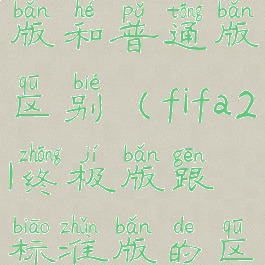 bǎn hé pǔ tōng bǎn
版和普通版
qū bié
区别(fifa2
zhōng jí bǎn gēn
1终极版跟
biāo zhǔn bǎn de qū
标准版的区